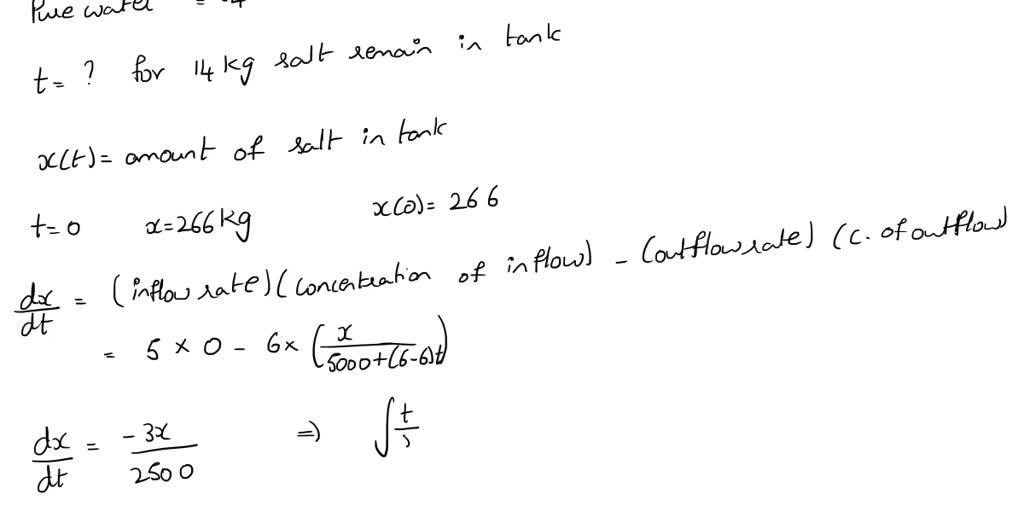 Pure water =
t = ? for 14 kg salt remain in tank
x(t) = amount of salt in tank
t=0 x=266 kg x(0) = 266
dx/dt = (inflow rate) (concentration of inflow) - (outflow rate) (c. of outflow)
= 5 × 0 - 6 × (x/5000+(6-6)t)
dx/dt = -3x/2500 ⇒ ∫